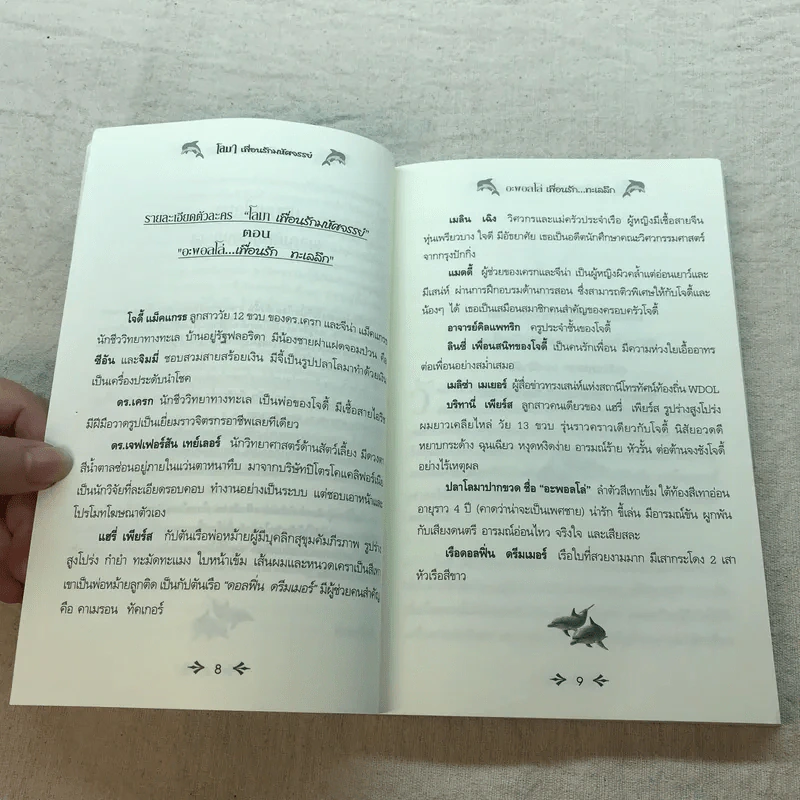 โลมา เพื่อนรักมหัศจรรย์
รายละเอียดตัวละคร "โลมา เพื่อนรักมหัศจรรย์"
ตอน
"อะพอลโล่...เพื่อนรัก ทะเลลึก"
โจดี้ แม็คแกรธ ลูกสาววัย 12 ขวบ ของดร.เครก และจีน่า แม็คแกรธ
นักชีววิทยาทางทะเล บ้านอยู่รัฐฟลอริดา มีน้องชายฝาแฝดจอมป่วน คือ
ซีอัน และจิมมี่ ชอบสวมสายสร้อยเงิน มีจี้เป็นรูปปลาโลมาทำด้วยเงิน
เป็นเครื่องประดับนำโชค
ดร.เครก นักชีววิทยาทางทะเล เป็นพ่อของโจดี้ มีเชื้อสายไอริช
มีฝีมือวาดรูปเป็นเยี่ยมราวจิตรกรอาชีพเลยทีเดียว
ดร.เจฟเฟอร์สัน เทย์เลอร์ นักวิทยาศาสตร์ด้านสัตว์เลี้ยง มีดวงตา
สีน้ำตาลซ่อนอยู่ภายในแว่นตาหนาทึบ มาจากบริษัทปิโตรโคแคลิฟอร์เนีย
เป็นนักวิจัยที่ละเอียดรอบคอบ ทำงานอย่างเป็นระบบ แต่ชอบเอาหน้าและ
โปรโมทโฆษณาตัวเอง
แฮรี่ เพียร์ส กัปตันเรือพ่อหม้ายผู้มีบุคลิกสุขุมคัมภีรภาพ รูปร่าง
สูงโปร่ง กำยำ ทะมัดทะแมง ใบหน้าเข้ม เส้นผมและหนวดเคราเป็นสีเทา
เขาเป็นพ่อหม้ายลูกติด เป็นกัปตันเรือ "ดอลฟิน ดรีมเมอร์" มีผู้ช่วยคนสำคัญ
คือ คาเมรอน ทัคเกอร์
8
อะพอลโล่ เพื่อนรัก...ทะเลลึก
เมลิน เฉิง วิศวกรและแม่ครัวประจำเรือ ผู้หญิงมีเชื้อสายจีน
หุ่นเพรียวบาง ใจดี มีอัธยาศัย เธอเป็นอดีตนักศึกษาคณะวิศวกรรมศาสตร์
จากกรุงปักกิ่ง
แมดดี้ ผู้ช่วยของเครกและจีน่า เป็นผู้หญิงผิวคล้ำแต่อ่อนเยาว์และ
มีเสน่ห์ ผ่านการฝึกอบรมด้านการสอน ซึ่งสามารถติวพิเศษให้กับโจดี้และ
น้องๆ ได้ เธอเป็นเสมือนสมาชิกคนสำคัญของครอบครัวโจดี้
อาจารย์คิลแพทริก ครูประจำชั้นของโจดี้
ลินซี่ เพื่อนสนิทของโจดี้ เป็นคนรักเพื่อน มีความห่วงใยเอื้ออาทร
ต่อเพื่อนอย่างสม่ำเสมอ
เมลิซ่า เมเยอร์ ผู้สื่อข่าวทรงเสน่ห์แห่งสถานีโทรทัศน์ท้องถิ่น WDOL
บริทานี่ เพียร์ส ลูกสาวคนเดียวของ แฮรี่ เพียร์ส รูปร่างสูงโปร่ง
ผมยาวเคลียไหล่ วัย 13 ขวบ รุ่นราวคราวเดียวกับโจดี้ นิสัยอวดดี
หยาบกระด้าง ฉุนเฉียว หงุดหงิดง่าย อารมณ์ร้าย หัวรั้น ต่อต้านจงชังโจดี้
อย่างไร้เหตุผล
ปลาโลมาปากขวด ชื่อ "อะพอลโล่" ลำตัวสีเทาเข้ม ใต้ท้องสีเทาอ่อน
อายุราว 4 ปี (คาดว่าน่าจะเป็นเพศชาย) น่ารัก ขี้เล่น มีอารมณ์ขัน ผูกพัน
กับเสียงดนตรี อารมณ์อ่อนไหว จริงใจ และเสียสละ
เรือดอลฟิน ดรีมเมอร์ เรือใบที่สวยงามมาก มีเสากระโดง 2 เสา
หัวเรือสีขาว
9